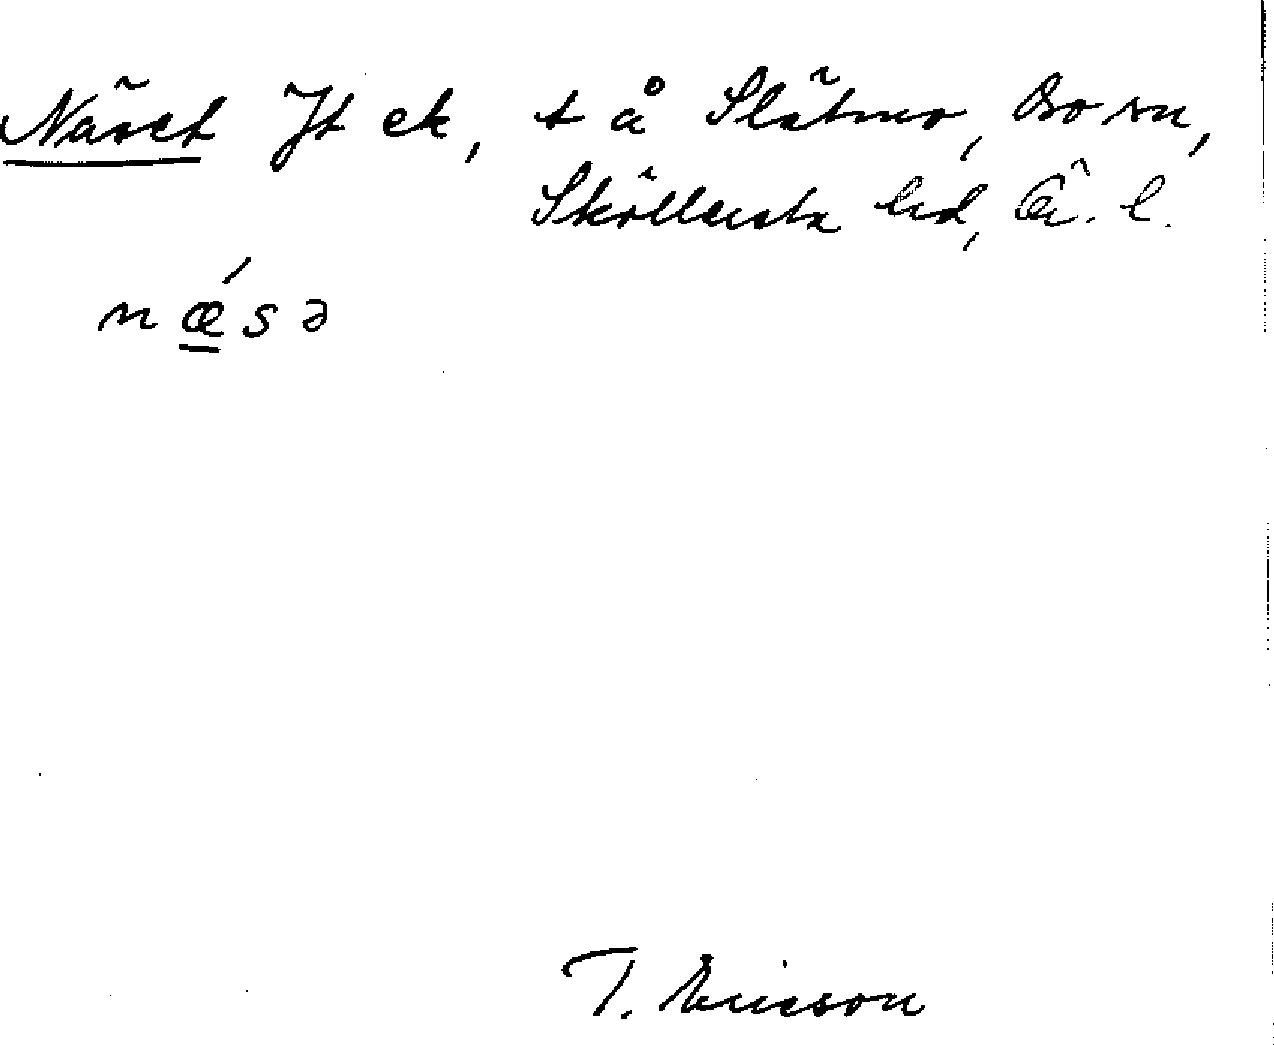 Näset Jt ek, t å Slätmo, Bo sn,
Sköllersta hd, Ö. l.
n ǽ s ə
T. Ericson